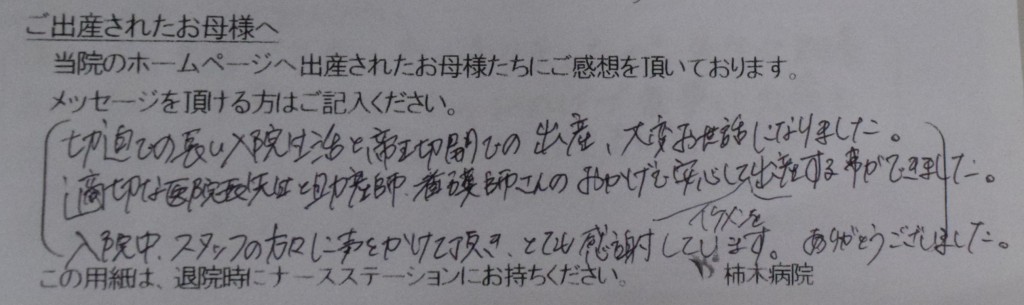 ご出産されたお母様へ
当院のホームページへ出産されたお母様たちにご感想を頂いております。
メッセージを頂ける方はご記入ください。
切迫での長い入院生活と帝王切開での出産、大変お世話になりました。
適切な医院長先生と助産師、看護師さんのおかげで安心して出産する事ができました。
入院中、スタッフの方々に声をかけて頂き、とても感謝しています。ありがとうございました。
この用細は、退院時にナースステーションにお持ちください。 柿木病院